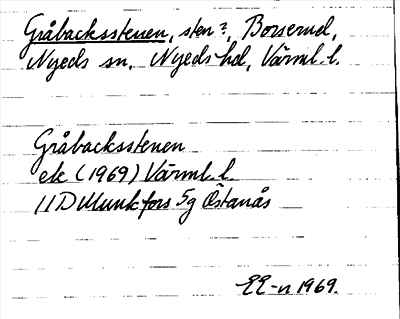 Gråbacksstenen, sten?, Borserud,
Nyeds sn, Nyeds hd, Värml. l.
Gråbacksstenen
ek (1969) Värml. l.
11D Munkfors 5g Östanås
EE-n 1969.